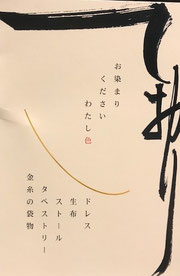 お染まり
ください
わたし色
ドレス
生布
ストール
タペストリー
金糸の袋物